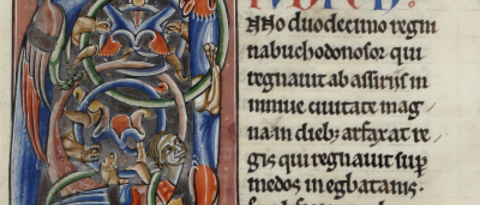 ANno duodecimo regni
nabuchodonosor qui
regnauit ab assiriis in
niniue ciuitate mag
na in dieb; arfaxat re
gis qui regnauit sup
medos in egbatanis.